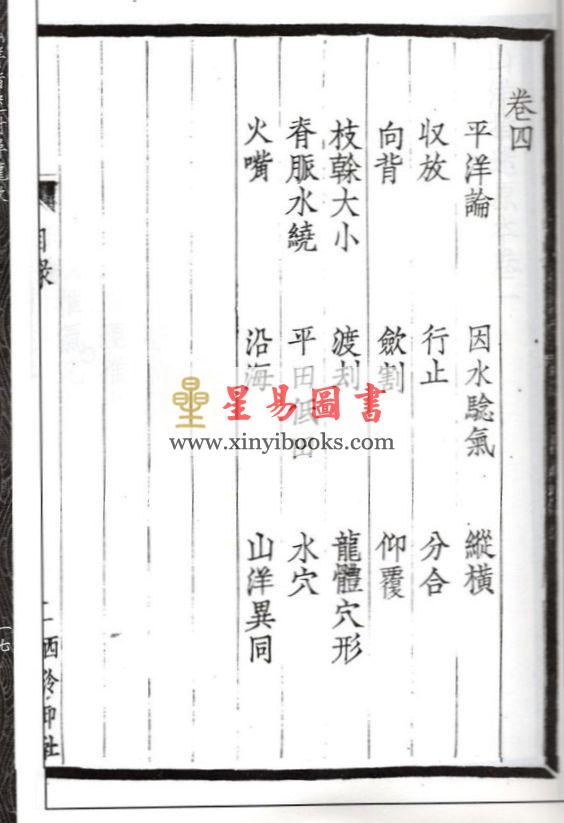 卷四
平洋論 因水騐氣 縱橫
収放 行止 分合
向背 歛割 仰覆
枝榦大小 渡刦 龍體穴形
脊脈水繞 平田低田 水穴
火嘴 沿海 山洋異同
目錄
二 西泠印社
一七
星易圖書
www.xinyibooks.com